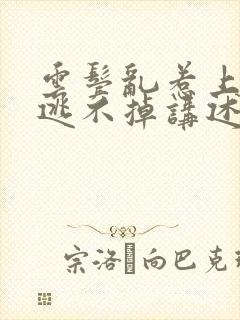 雲鬓亂惹上
逃不掉講述
宗洛向巴克